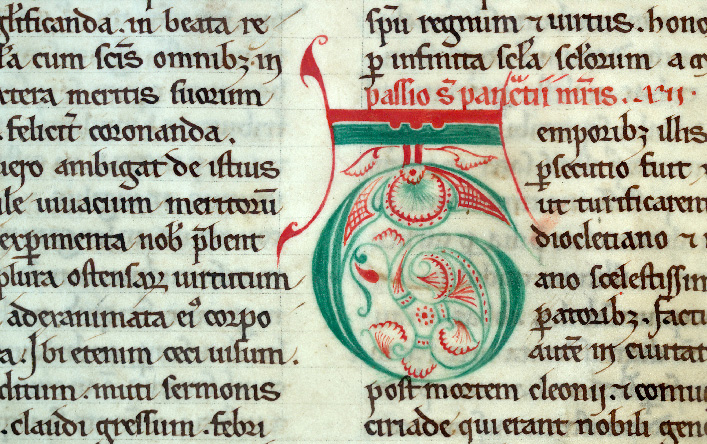 glificanda. in beata re
cum scis omnibꝫ. in
cetera meritis suorum
felicit̄ coronanda.
uero ambigat de istius
uiuacium meritorū
experimenta nob̄ p̄bent
plura ostensaꝝ uirtutum
ad exanimata eiꝰ corpo
ra. Ibi etenim ceci uisum.
ditum. muti sermonis
. claudi gressum. febri
spū regnum ⁊ uirtus. hono
ꝑ infinita scl̄a scl̄orum a
passio s̄ pancᷓtii mr̄is. .VII.
T
emporibꝫ illis
ꝑsecutio fuit
ut turificarent
diocletiano ⁊
ano scelestissim
ꝑatoribꝫ. factū
autē in ciuitat
post mortem eleonii. ⁊ comu
ciriade qui erant nobili gene